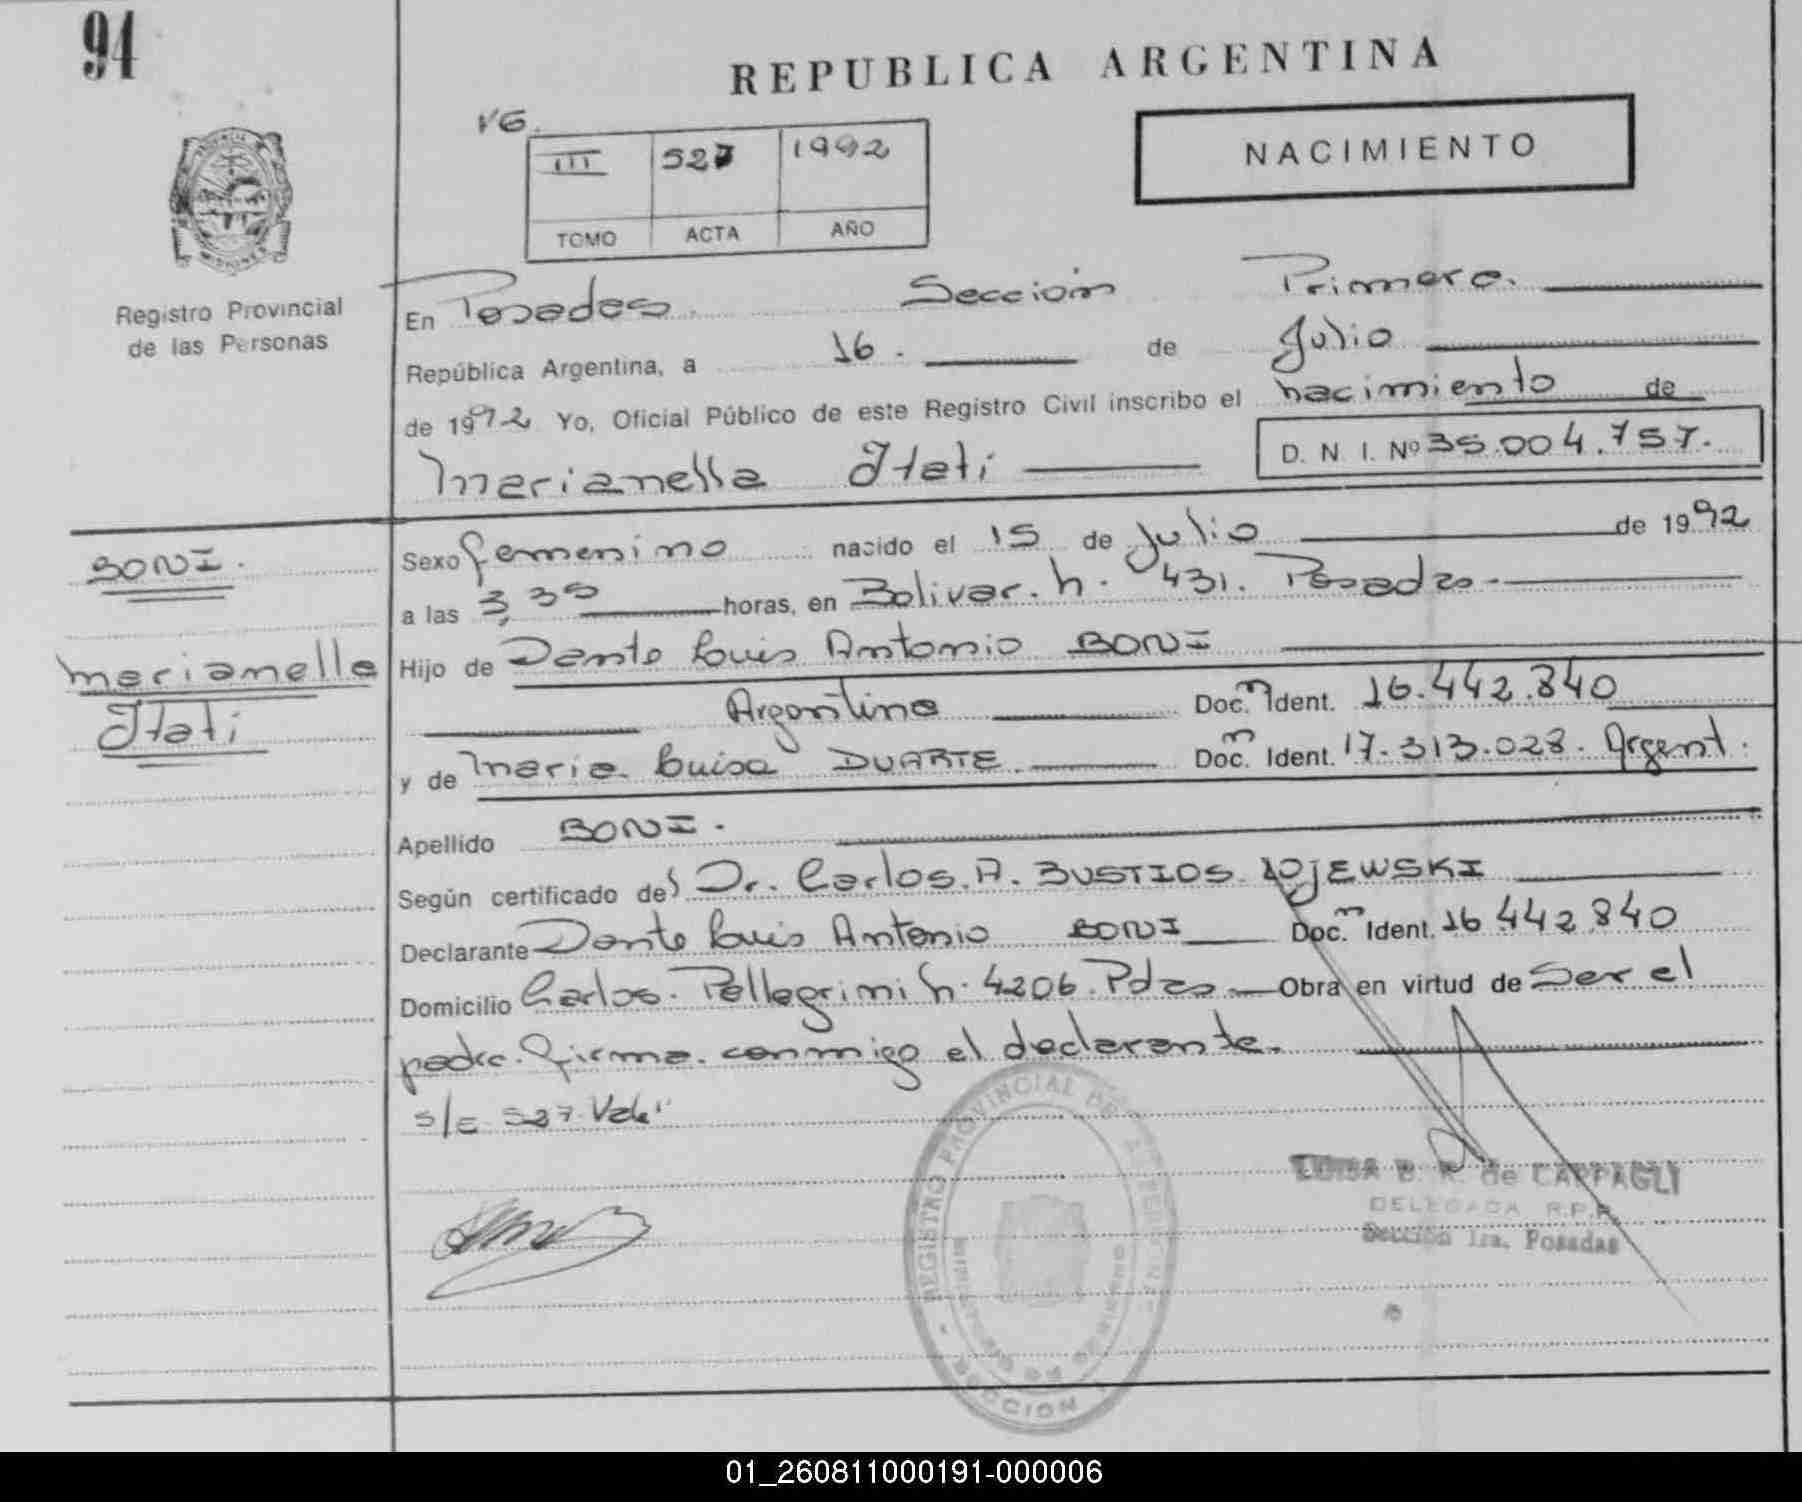 94
REPUBLICA ARGENTINA
VG.
III 527 1992
TOMO ACTA AÑO
NACIMIENTO
Registro Provincial
de las Personas
En Posadas. Sección Primera.
República Argentina, a 16. de Julio
de 1992 Yo, Oficial Público de este Registro Civil inscribo el nacimiento de
Marianella Itati D. N. I. Nº 35.004.757.
BONI.
Marianella
Itati
Sexo femenino nacido el 15 de Julio de 1992
a las 3,35 horas, en Bolivar. h. 431. Posadas.
Hijo de Dante Luis Antonio BONI
Argentino Doc. Ident. 16.442.840
y de Maria Luisa DUARTE. Doc. Ident. 17.313.028. Argent.
Apellido BONI.
Según certificado del Dr. Carlos. A. BUSTIOS LOJEWSKI
Declarante Dante Luis Antonio BONI Doc. Ident. 16.442.840
Domicilio Carlos. Pellegrini h. 4206. Pdas Obra en virtud de Ser el
padre. firma. conmigo el declarante.
s/E 527 Vale"
REGISTRO PROVINCIAL DE
SECCION
B. R. de CAPPAGLI
DELEGADA R.P.P.
Sección 1ra. Posadas
01_260811000191-000006